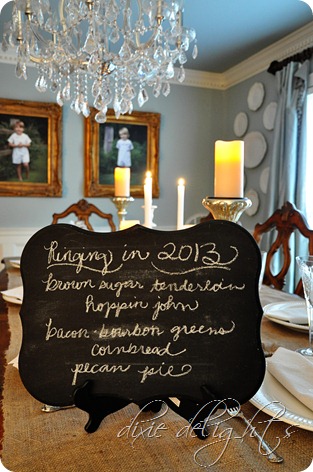 Ringing in 2013
brown sugar tenderloin
hoppin john
bacon-bourbon greens
cornbread
pecan pie
dixie delights